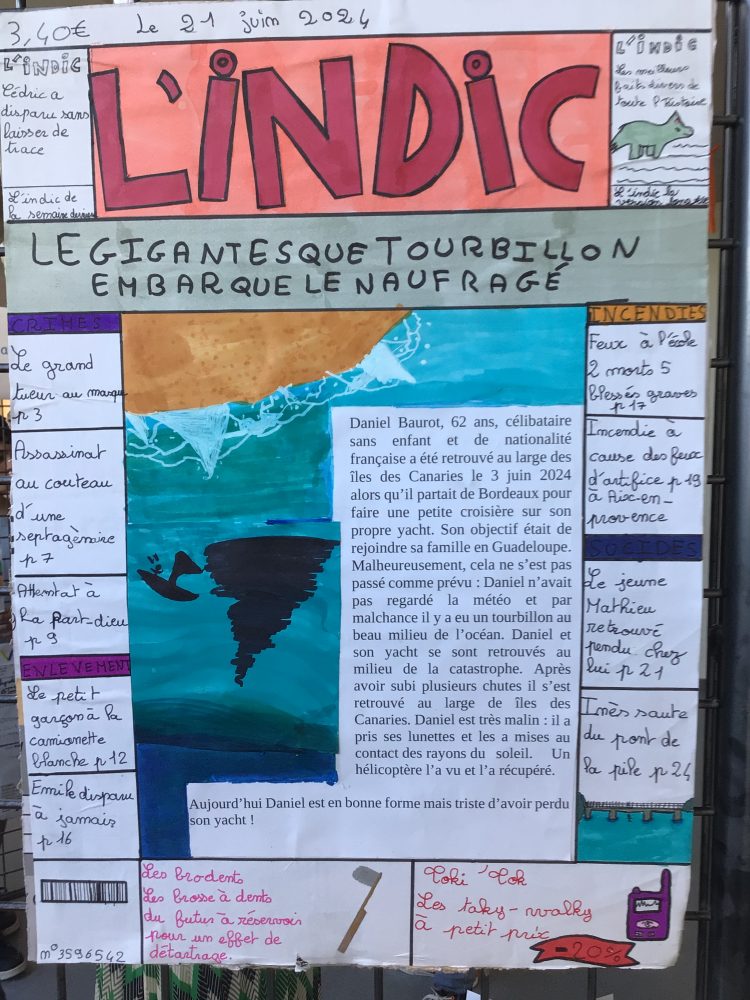 3,40€ Le 21 juin 2024
L'INDIC
Cédric a
disparu sans
laisser de
trace
L'indic de
la semaine dernière
L'INDIC
L'INDIC
Les meilleurs
faits divers de
toute l'histoire
L'indic la
version
LE GIGANTESQUE TOURBILLON
EMBARQUE LE NAUFRAGÉ
CRIMES
Le grand
tueur au masque
p 3
Assassinat
au couteau
d'une
septagénaire
p 7
Attentat à
La Part-dieu
p 9
ENLEVEMENT
Le petit
garçon à la
camionette
blanche p 12
Emile disparu
à jamais
p 16
Daniel Baurot, 62 ans, célibataire
sans enfant et de nationalité
française a été retrouvé au large des
îles des Canaries le 3 juin 2024
alors qu'il partait de Bordeaux pour
faire une petite croisière sur son
propre yacht. Son objectif était de
rejoindre sa famille en Guadeloupe.
Malheureusement, cela ne s'est pas
passé comme prévu : Daniel n'avait
pas regardé la météo et par
malchance il y a eu un tourbillon au
beau milieu de l'océan. Daniel et
son yacht se sont retrouvés au
milieu de la catastrophe. Après
avoir subi plusieurs chutes il s'est
retrouvé au large de îles des
Canaries. Daniel est très malin : il a
pris ses lunettes et les a mises au
contact des rayons du soleil. Un
hélicoptère l'a vu et l'a récupéré.
Aujourd'hui Daniel est en bonne forme mais triste d'avoir perdu
son yacht !
INCENDIES
Feux à l'école
2 morts 5
blessés graves
p 17
Incendie à
cause des feux
d'artifice p 19
à Aix-en-
provence
SUICIDES
Le jeune
Mathieu
retrouvé
pendu chez
lui p 21
Inès saute
du pont de
la pile p 24
n°3596542
Les brodents
Les brosse à dents
du futur à réservoir
pour un effet de
détartrage.
Toki Tok
Les taky-walky
à petit prix
-20%